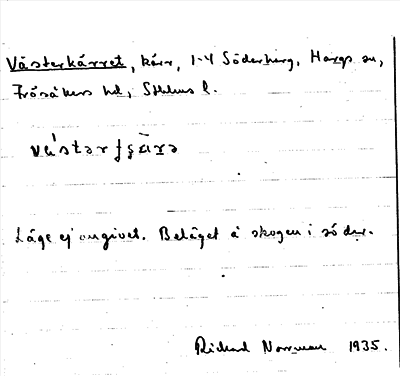 Västerkärret, kärr, 1-4 Söderberg, Hargs sn,
Frösåkers hd, Sthlms l.
Läge ej angivet. Beläget å skogen i söder.
Richard Norrman 1935.